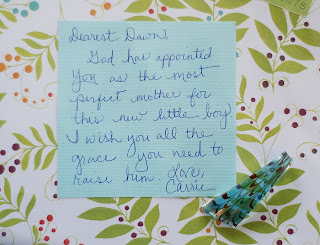 Dearest Dawn,
God has appointed
you as the most
perfect mother for
this new little boy!
I wish you all the
grace you need to
raise him. Love,
Carrie